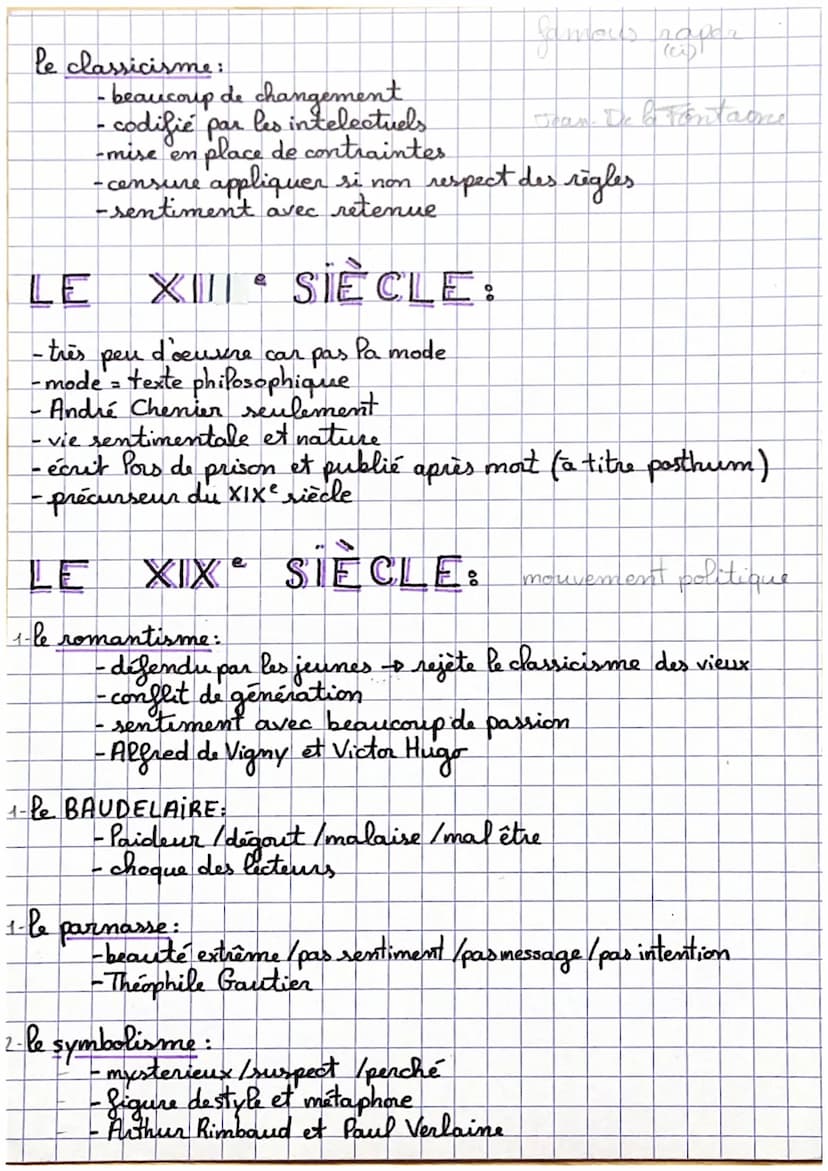 le classicisme:
- beaucoup de changement
- codifié par les intelectuels
Jean. De la Fontaine
- mise en place de contraintes
- censure appliquer si non respect des règles
- sentiment avec retenue
LE XIIIe SIÈCLE:
- très peu d'oeuvre car pas la mode
- mode = texte philosophique
- André Chenier seulement
- vie sentimentale et nature
- écrit lors de prison et publié après mort (à titre posthum)
- précurseur du XIXe siècle
LE XIXe SIÈCLE: mouvement politique
1- le romantisme:
- défendu par les jeunes → rejète le classicisme des vieux
- conflit de génération
- sentiment avec beaucoup de passion
- Alfred de Vigny et Victor Hugo
1- le BAUDELAIRE:
- laideur / dégout / malaise / mal être
- choque des lecteurs
1- le parnasse:
- beauté extrême / pas sentiment / pas message / pas intention
- Théophile Gautier
2- le symbolisme:
- mysterieux / suspect / perché
- figure de style et métaphore
- Arthur Rimbaud et Paul Verlaine